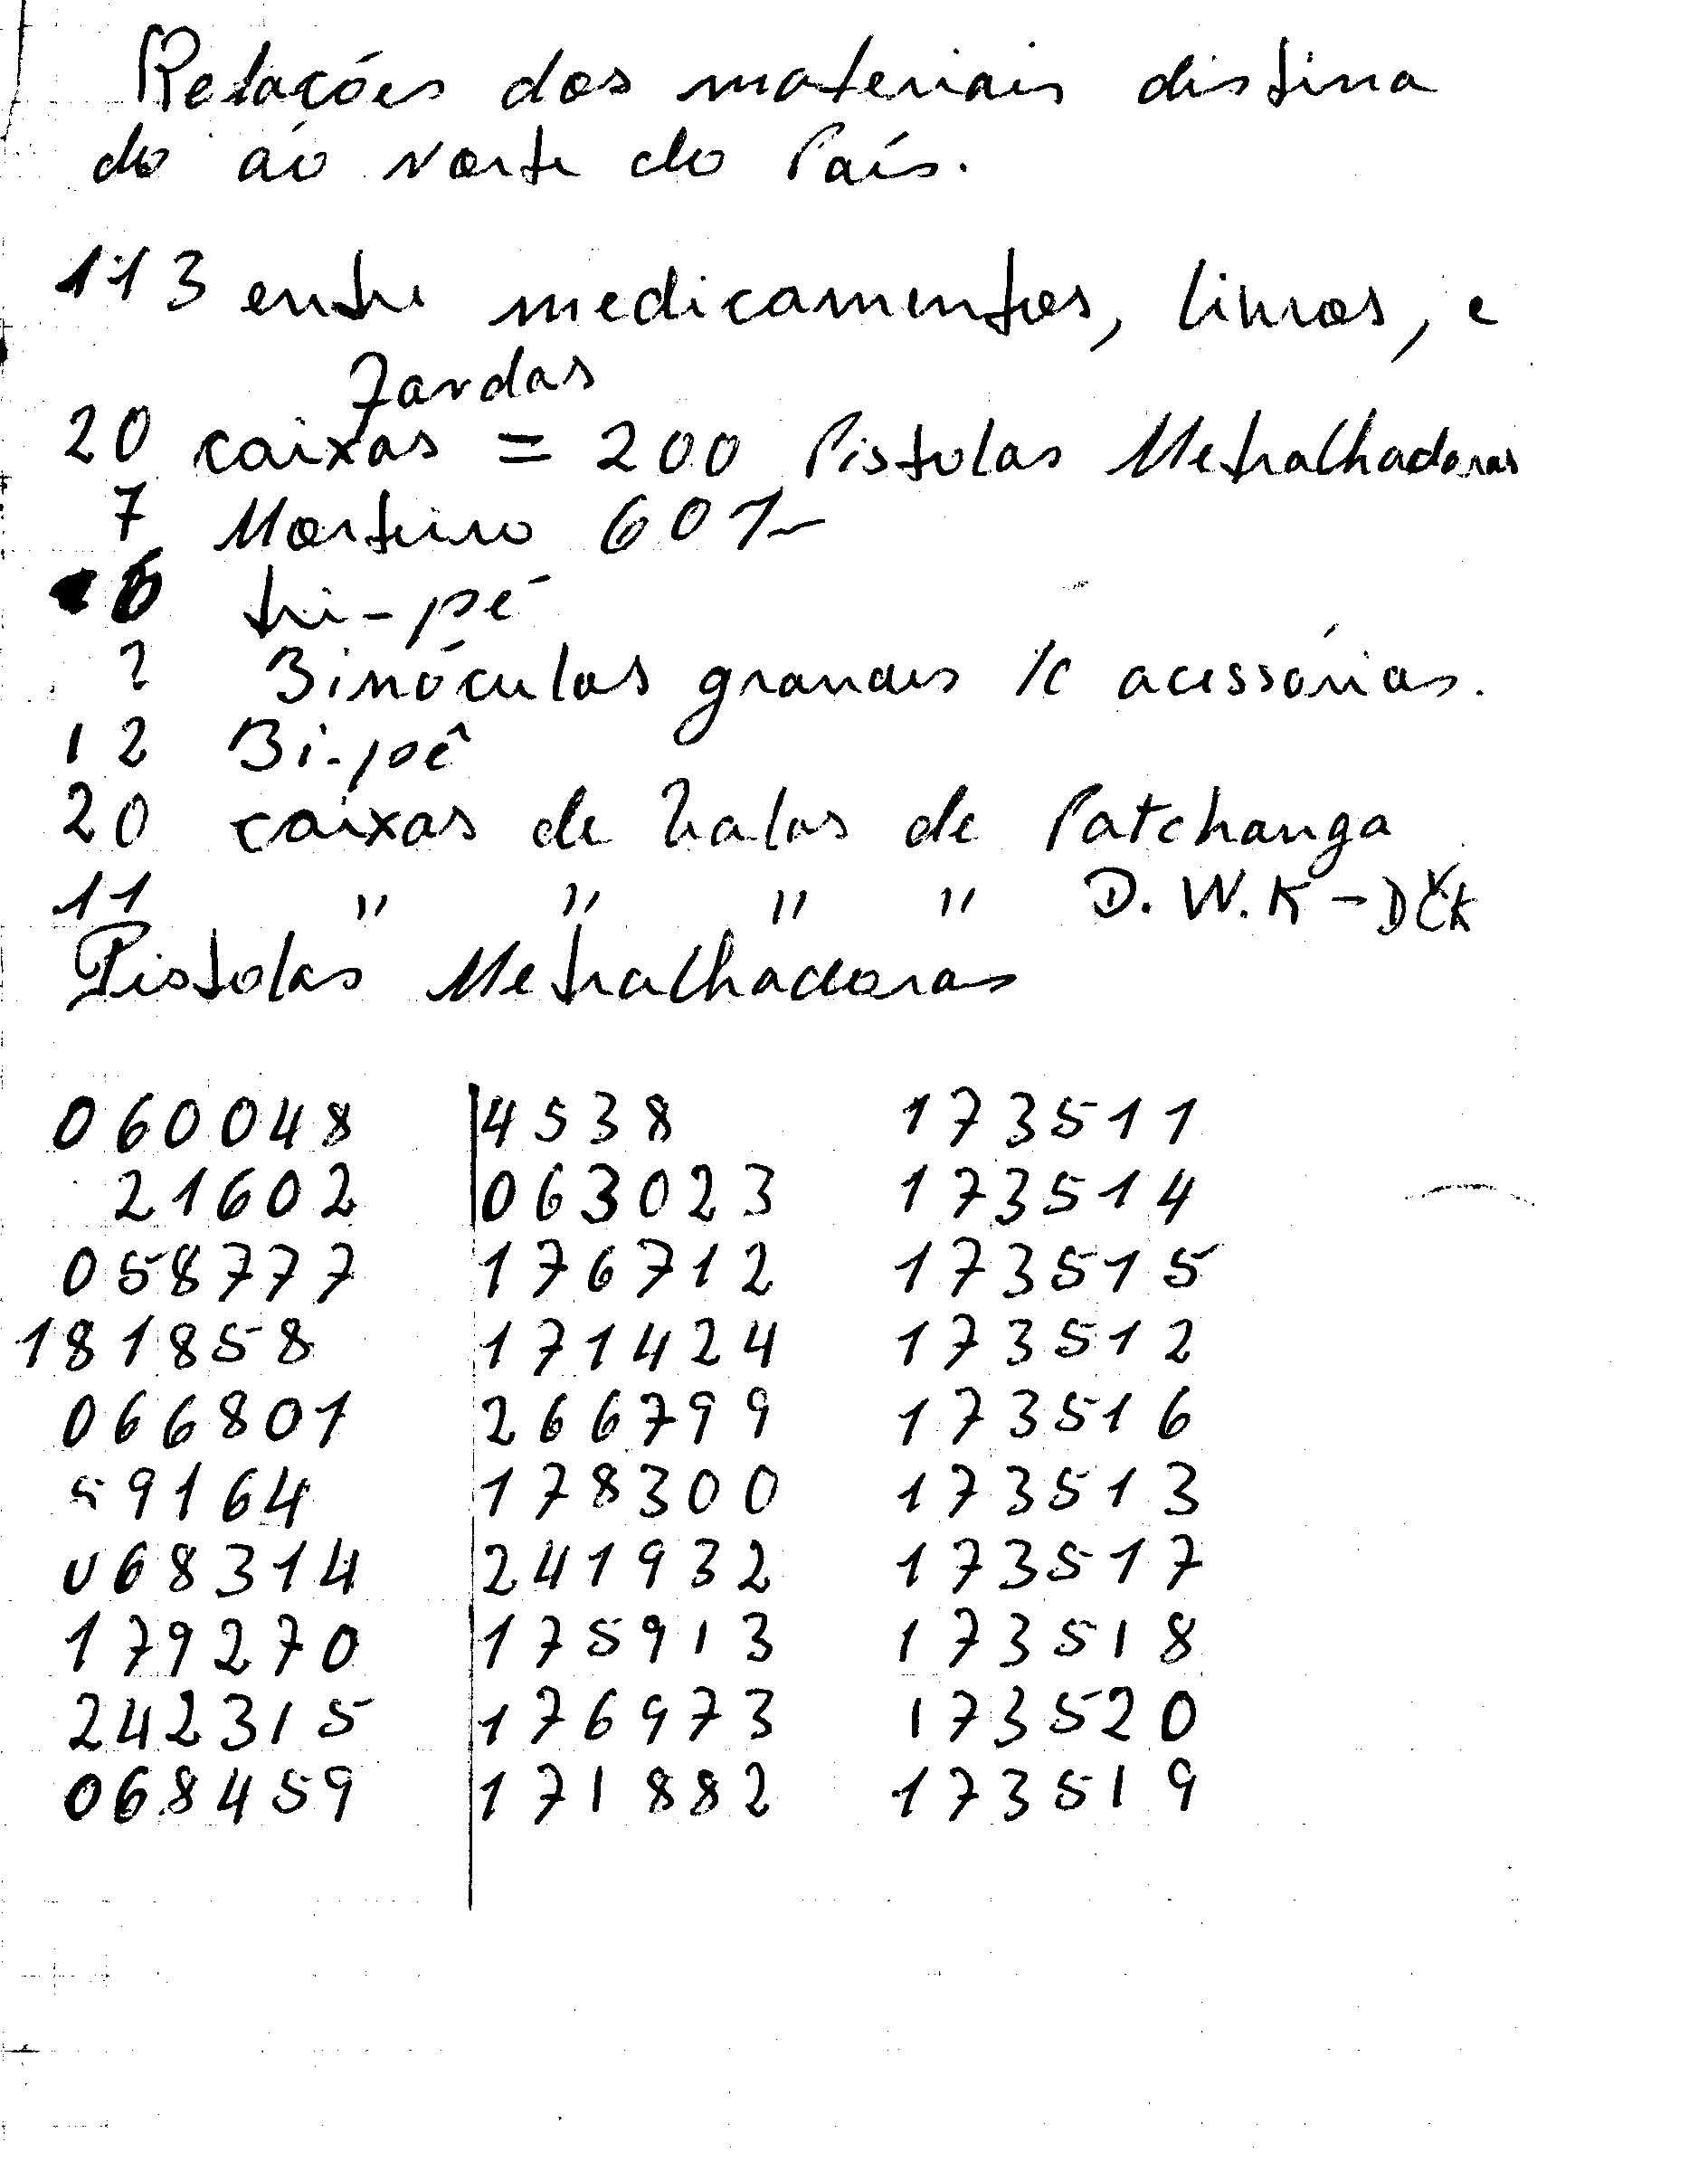 Relações dos materiais distina
do ao Norte do País.
113 entre medicamentos, livros, e
Fardas
20 caixas = 200 Pistolas Metralhadoras
7 Morteiro 60
6 tri-pé
2 Binóculos grandes /c acessórios.
12 Bi-pê
20 caixas de balas de Patchanga
11 " " " " D. W. K - DČK
Pistolas Metralhadoras
060048 4538 173511
21602 063023 173514
058777 176712 173515
181858 171424 173512
066801 266799 173516
59164 178300 173513
068314 241932 173517
179270 175913 173518
242315 176973 173520
068459 171882 173519